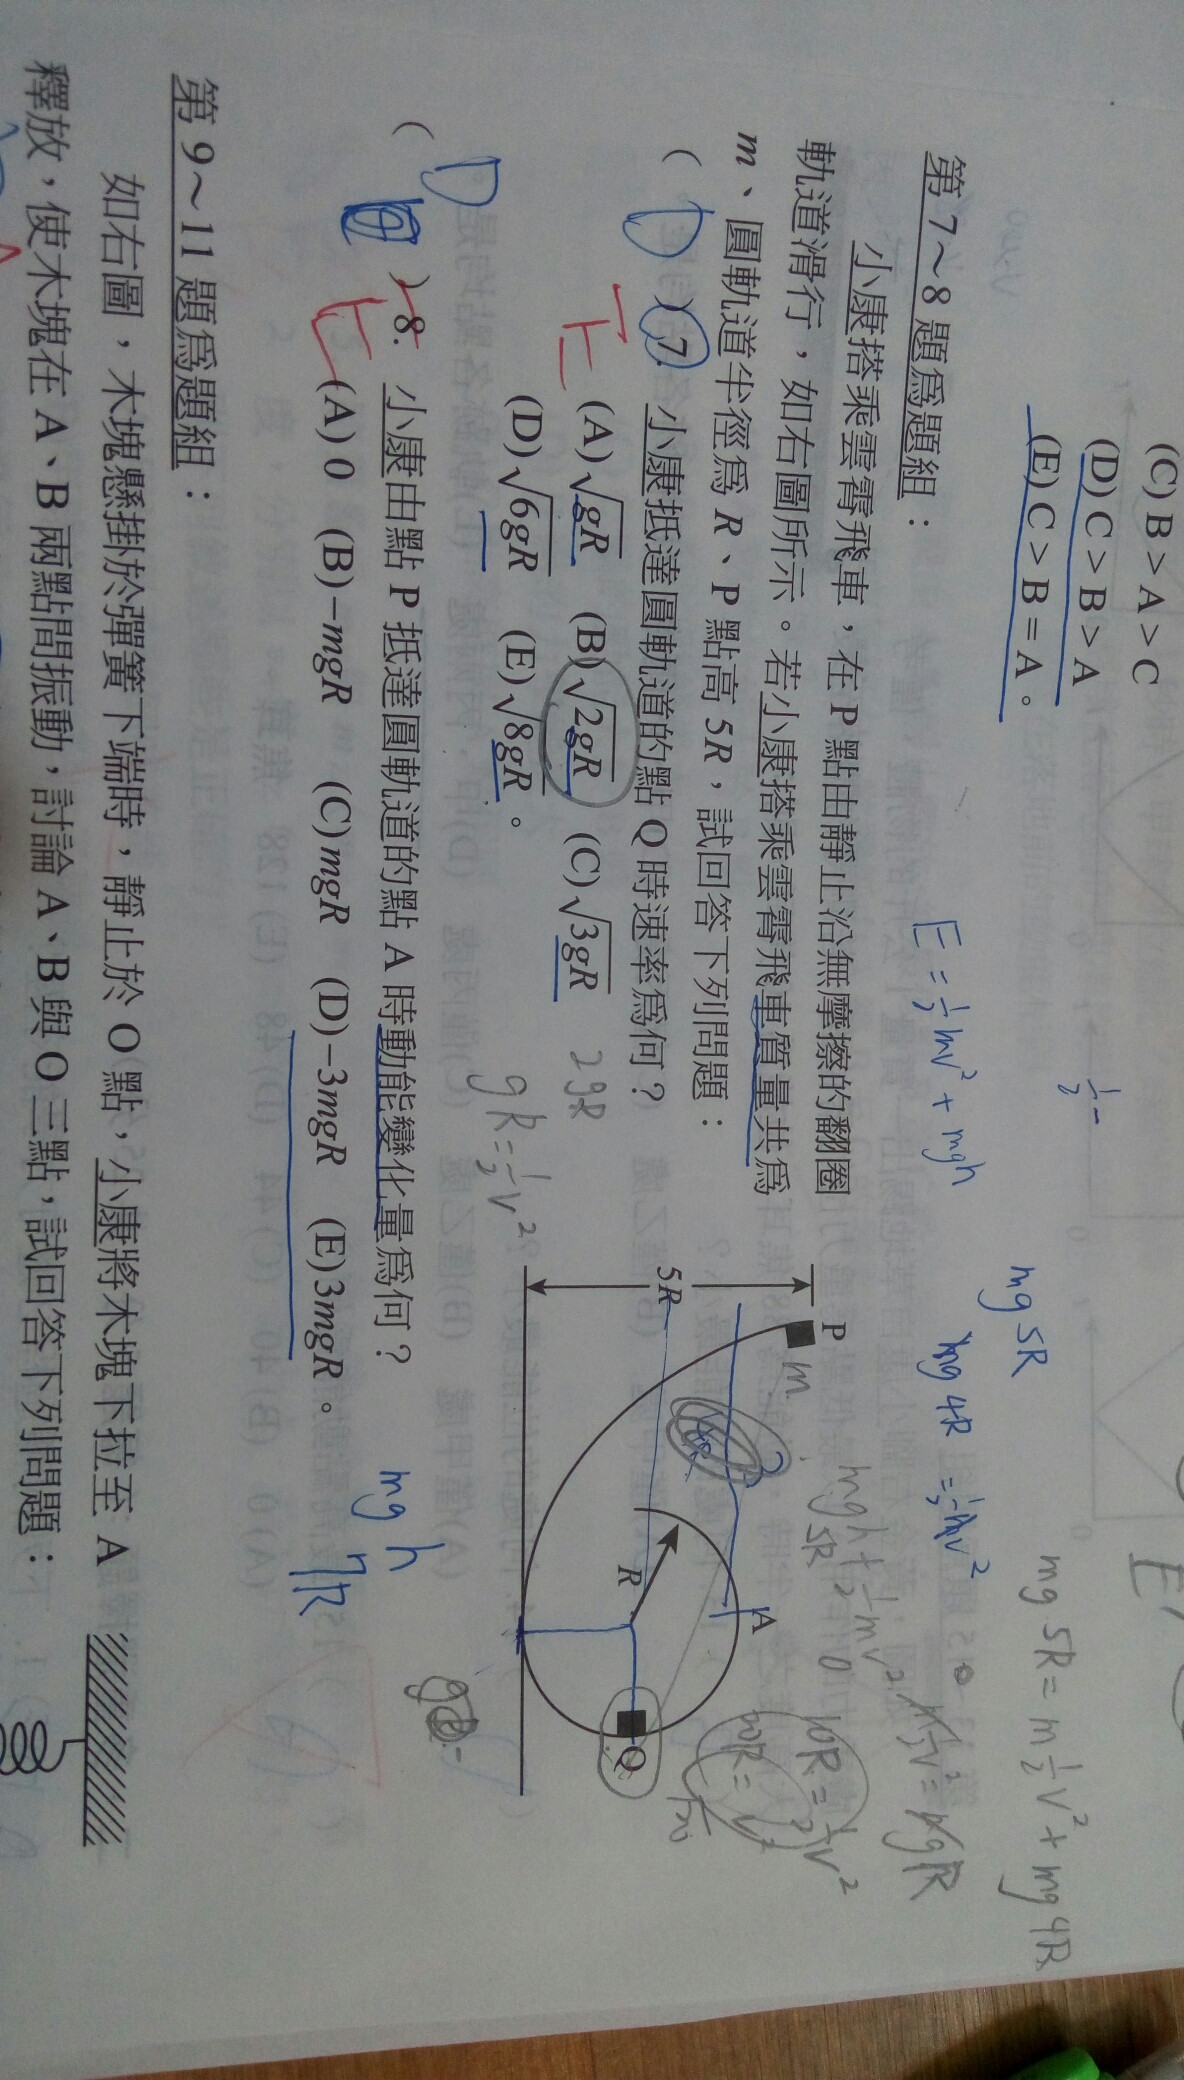 (C) B > A > C
(D) C > B > A
(E) C > B = A。
第 7～8 題為題組：
小康搭乘雲霄飛車，在 P 點由靜止沿無摩擦的翻圈
軌道滑行，如右圖所示。若小康搭乘雲霄飛車質量共為
m、圓軌道半徑為 R、P 點高 5R，試回答下列問題：
( D ) 7. 小康抵達圓軌道的點 Q 時速率為何？
(A)√gR (B)√2gR (C)√3gR
(D)√6gR (E)√8gR。
( D ) 8. 小康由點 P 抵達圓軌道的點 A 時動能變化量為何？
(A) 0 (B)−mgR (C)mgR (D)−3mgR (E)3mgR。
E
E = ½mv² + mgh
mg 5R
mg 4R = ½mv²
mg 5R = m½v² + mg 4R
mgh + ½mv²
5R
10R = ½v²
½v² = gR
2gR
gR = ½v²
mg h
P
m
5R
R
A
Q
第 9～11 題為題組：
如右圖，木塊懸掛於彈簧下端時，靜止於 O 點，小康將木塊下拉至 A
釋放，使木塊在 A、B 兩點間振動，討論 A、B 與 O 三點，試回答下列問題：